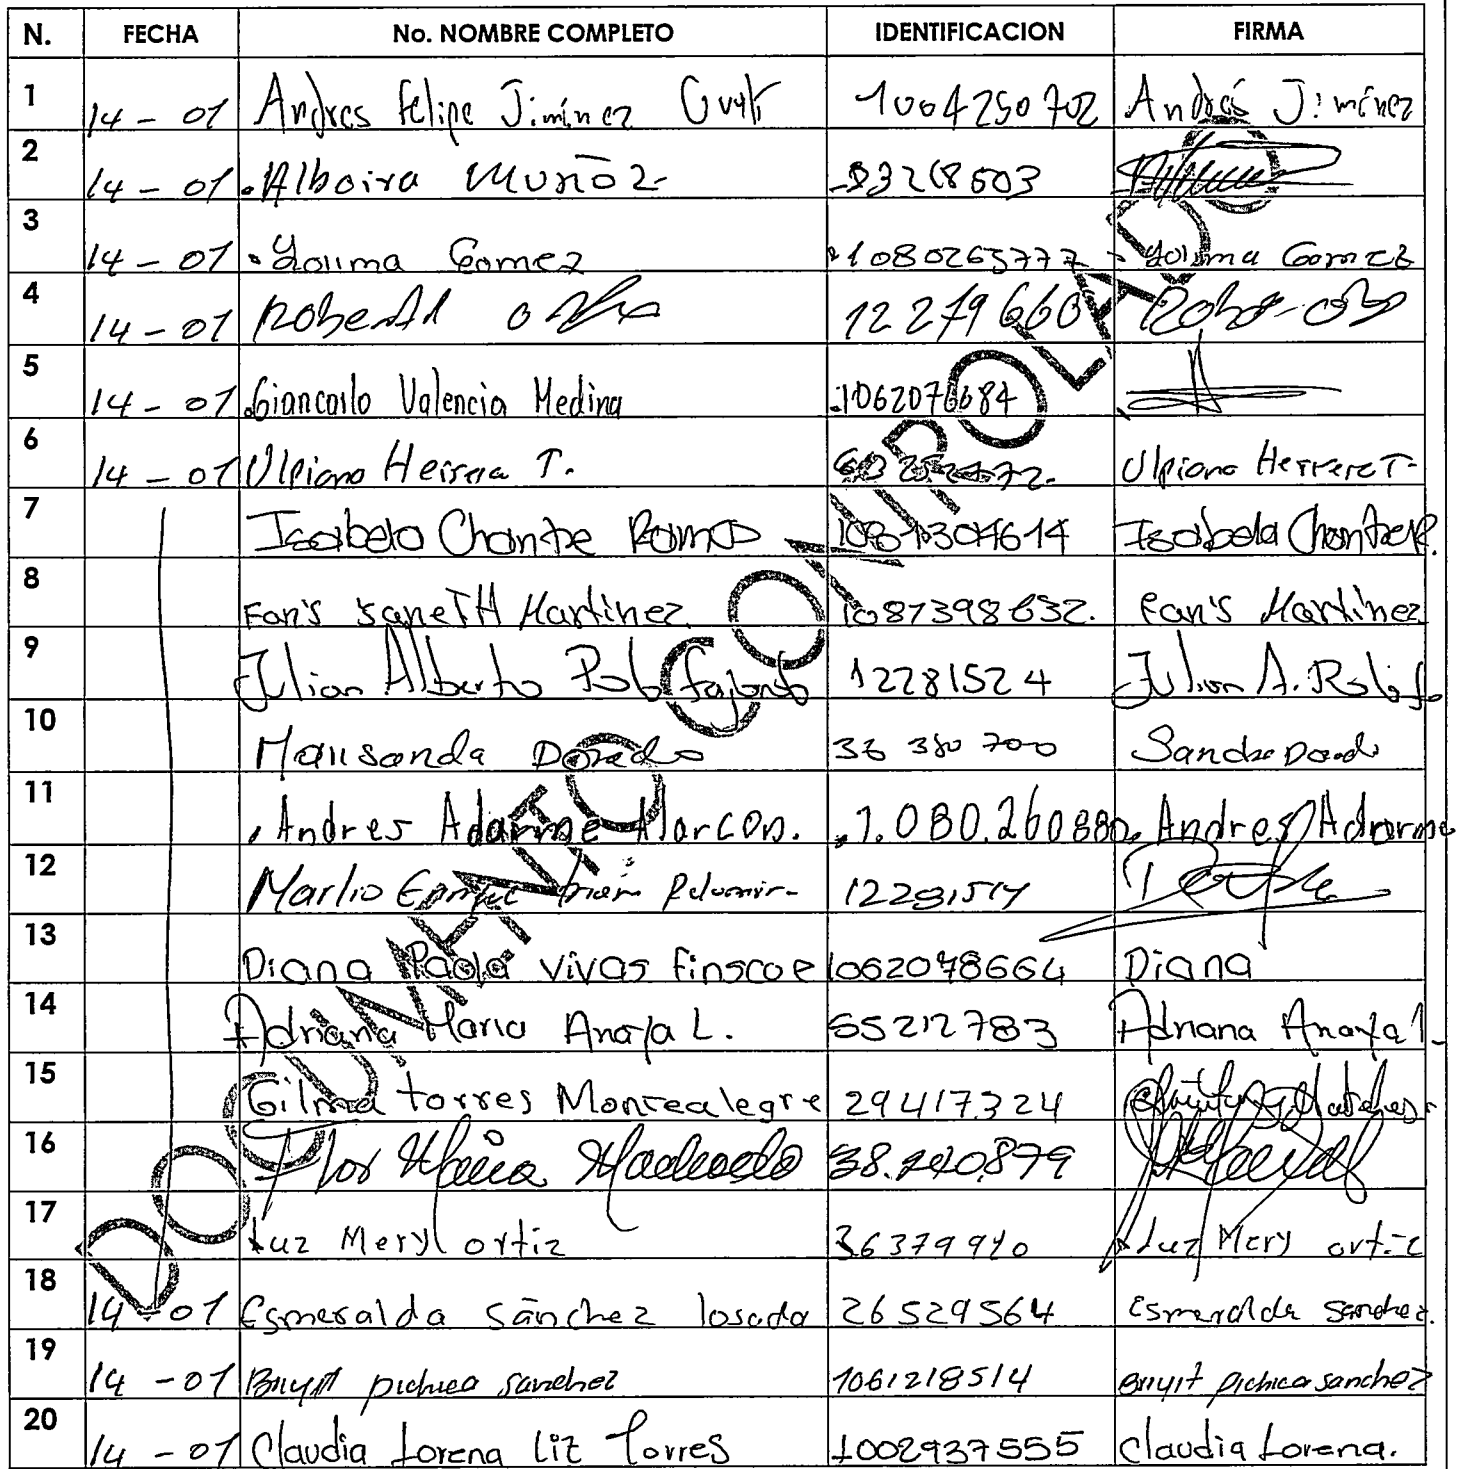 N. FECHA No. NOMBRE COMPLETO IDENTIFICACION FIRMA
1 14 - 01 Andres felipe Jiminez 1004250702 Andrés Jiminez
2 14 - 01 Alboira MUÑOZ
3 14 - 01 Yolima Gomez 1080265777 Yolima Gomez
4 14 - 01 12279660
5 14 - 01 Giancarlo Valencia Medina 1062076684
6 14 - 01 Ulpiano Herrera T. Ulpiano Herrera T.
7 Isabela Chantre Ramos Isabela Chantre R.
8 Fan's YaneTH Martinez 1081398632. Fan's Martinez
9 Julian Alberto Polo fajardo 12281524 Julian A. Polo f
10 Dorado Sandra
11 Andres Adarme Alarcon. 1.080.260880 Andres Adarme
12 Marlio
13 Diana Paola vivas finscue 1062078664 Diana
14 Adriana Maria Anaya L. 55212783 Adriana Anaya L
15 Gilma torres Montealegre 29417324
16 Flor Maria 38.240.879
17 Luz Mery ortiz 36379970 Luz Mery ortiz
18 14 - 01 Esmeralda sánchez losada 26529564 Esmeralda sanchez.
19 14 - 01 sanchez 1061218514 sanchez
20 14 - 01 Claudia Lorena Liz Torres 1002937555 Claudia Lorena.
DOCUMENTO CONTROLADO